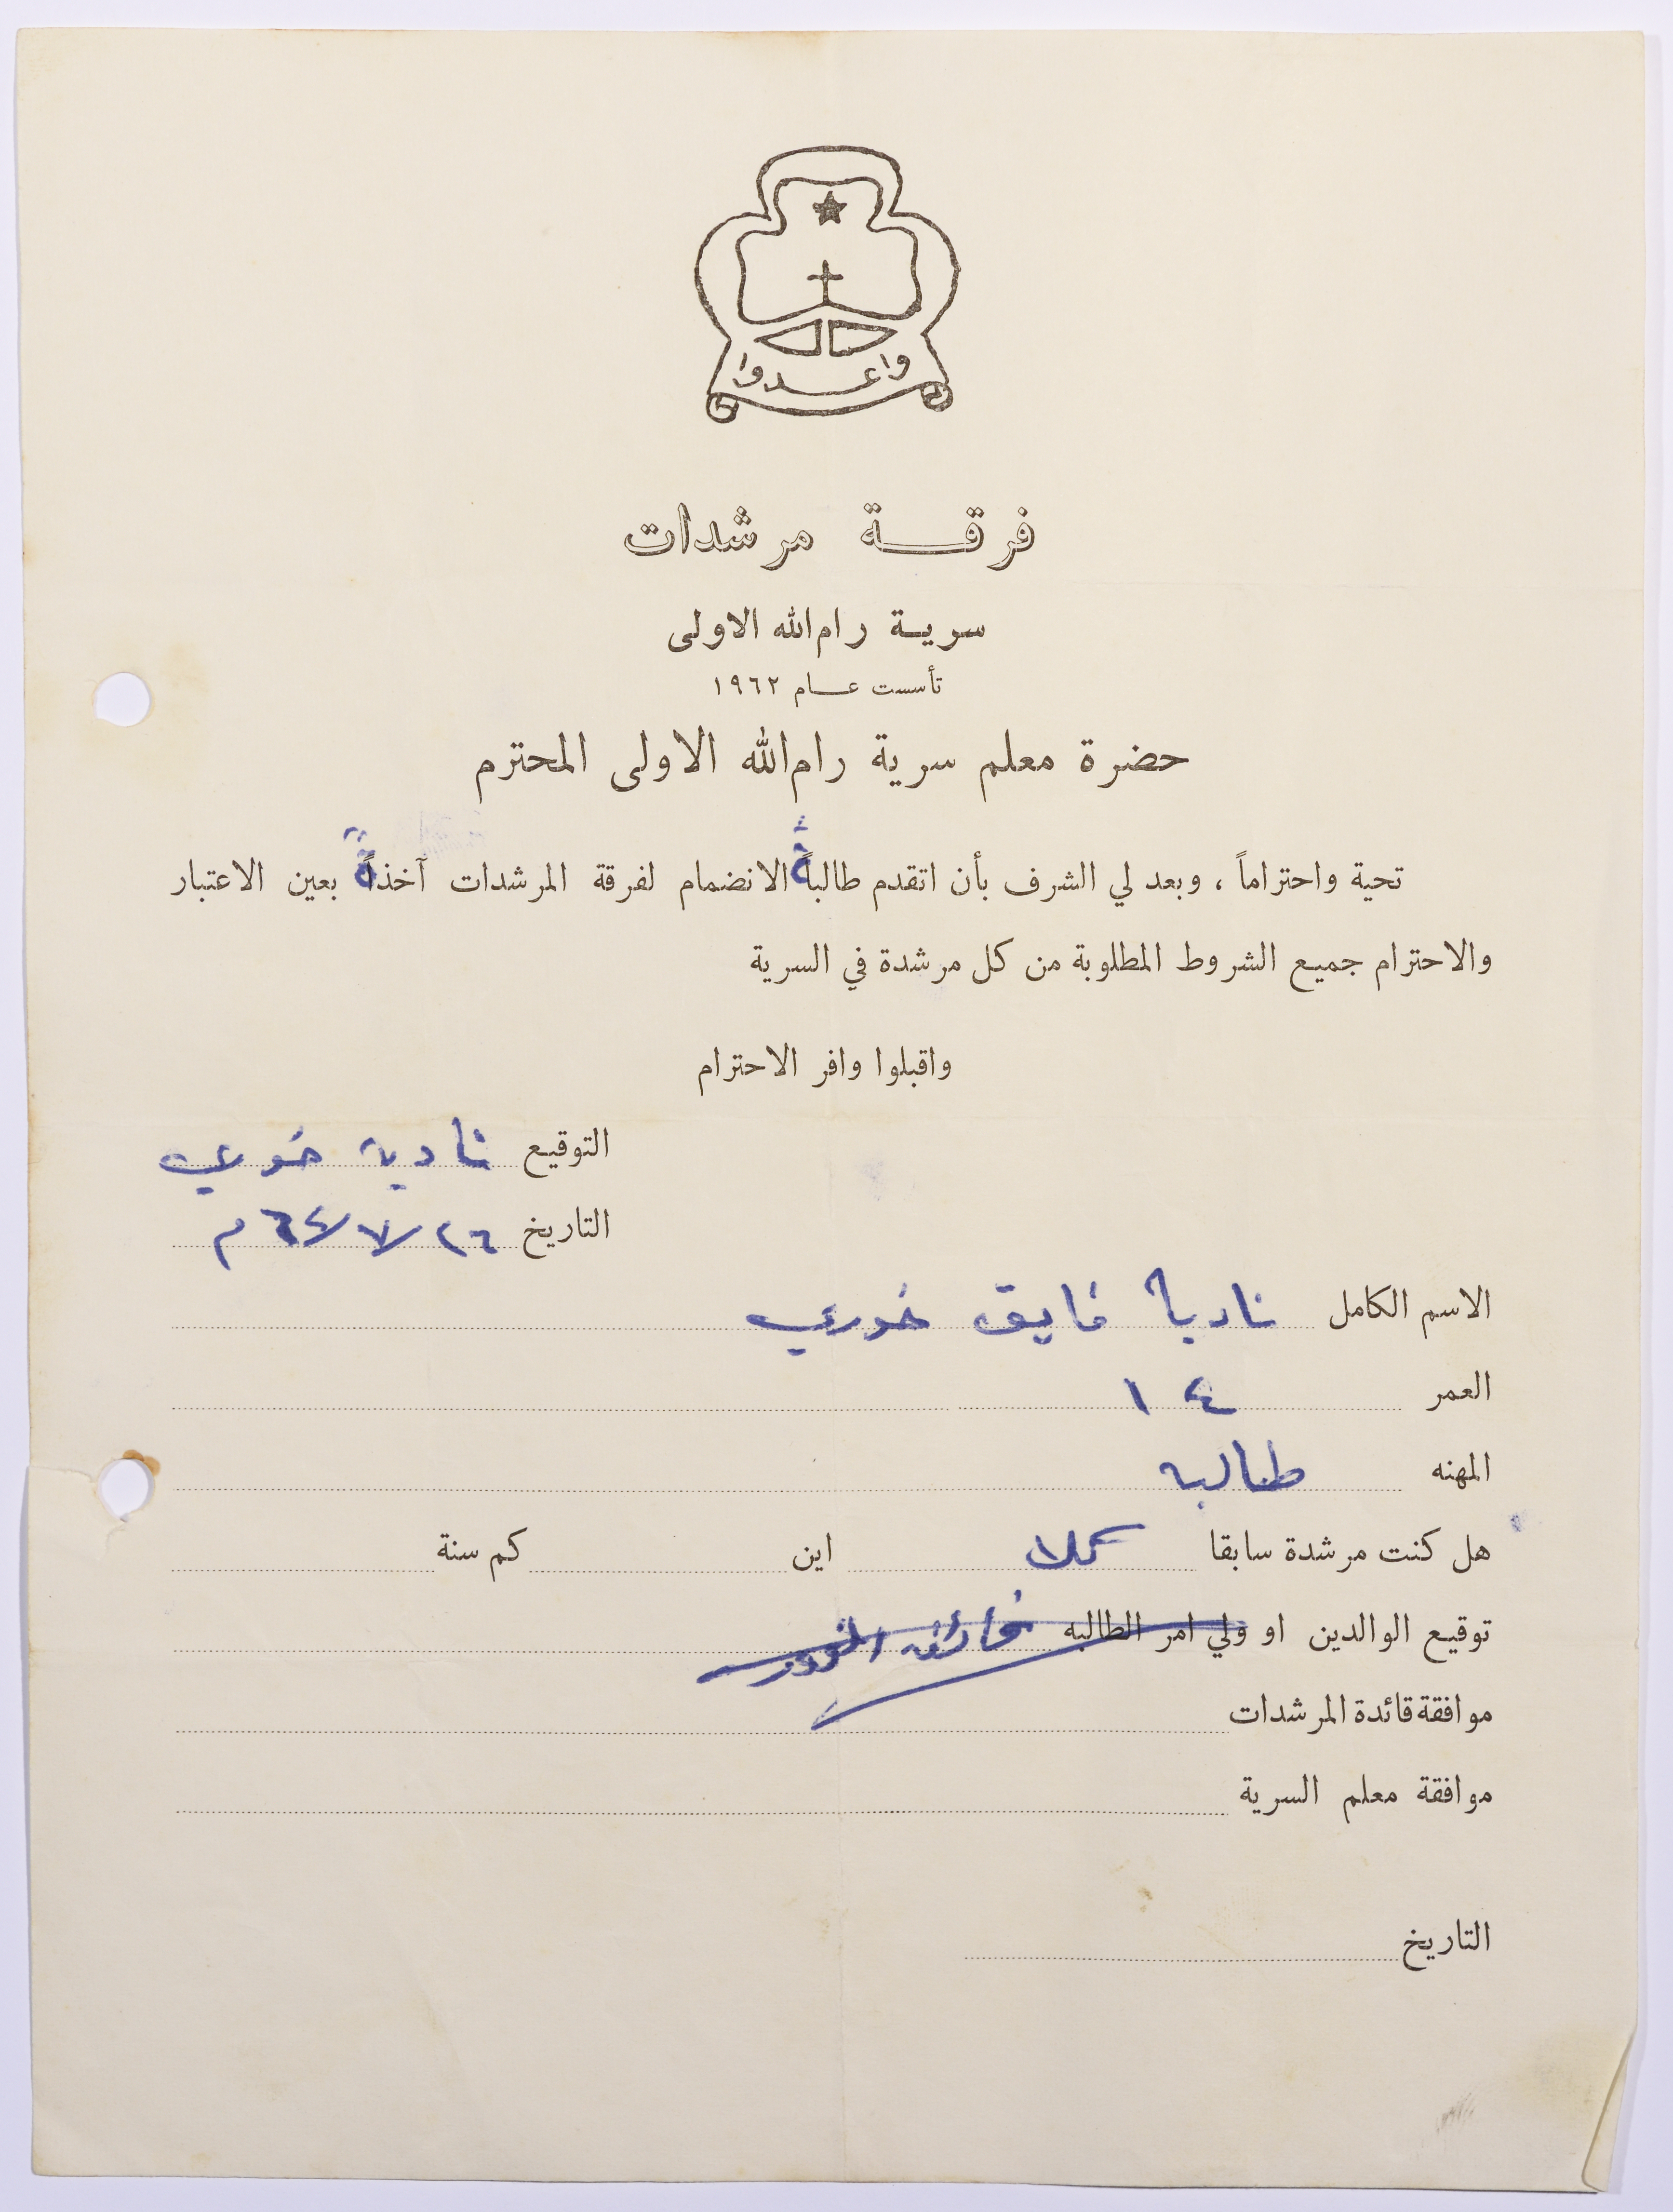 واعدوا
فرقة مرشدات
سرية رام الله الاولى
تأسست عام ١٩٦٢
حضرة معلم سرية رام الله الاولى المحترم
تحية واحتراماً ، وبعد لي الشرف بأن اتقدم طالبةً الانضمام لفرقة المرشدات آخذةً بعين الاعتبار
والاحترام جميع الشروط المطلوبة من كل مرشدة في السرية
واقبلوا وافر الاحترام
التوقيع نادية خوري
التاريخ ٢٦/٧/٦٤ م
الاسم الكامل نادية فايق خوري
العمر ١٤
المهنه طالبة
هل كنت مرشدة سابقا كلا اين كم سنة
توقيع الوالدين او ولي امر الطالبه
موافقة قائدة المرشدات
موافقة معلم السرية
التاريخ